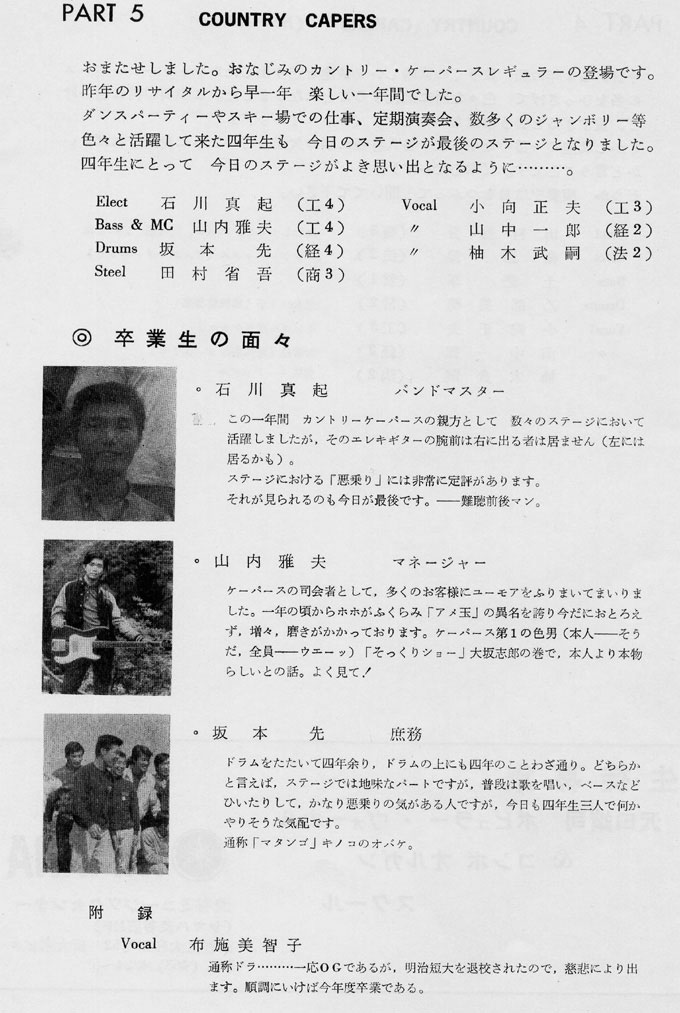 PART 5
COUNTRY CAPERS
おまたせしました。おなじみのカントリー・ケーパースレギュラーの登場です。
昨年のリサイタルから早一年　楽しい一年間でした。
ダンスパーティーやスキー場での仕事、定期演奏会、数多くのジャンボリー等
色々と活躍して来た四年生も　今日のステージが最後のステージとなりました。
四年生にとって　今日のステージがよき思い出となるように………。
Elect　石川真起　（工4）　Vocal　小向正夫　（工3）
Bass & MC　山内雅夫　（工4）　〃　山中一郎　（経2）
Drums　坂本　先　（経4）　〃　柚木武嗣　（法2）
Steel　田村省吾　（商3）
◎　卒業生の面々
。石川真起　バンドマスター
この一年間　カントリーケーパースの親方として　数々のステージにおいて
活躍しましたが，そのエレキギターの腕前は右に出る者は居ません（左には
居るかも）。
ステージにおける「悪乗り」には非常に定評があります。
それが見られるのも今日が最後です。——難聴前後マン。
。山内雅夫　マネージャー
ケーパースの司会者として，多くのお客様にユーモアをふりまいてまいりま
した。一年の頃からホホがふくらみ「アメ玉」の異名を誇り今だにおとろえ
ず，増々，磨きがかかっております。ケーパース第１の色男（本人——そう
だ，全員——ウエーッ）「そっくりショー」大坂志郎の巻で，本人より本物
らしいとの話。よく見て！
。坂本　先　庶務
ドラムをたたいて四年余り，ドラムの上にも四年のことわざ通り。どちらか
と言えば，ステージでは地味なパートですが，普段は歌を唱い，ベースなど
ひいたりして，かなり悪乗りの気がある人ですが，今日も四年生三人で何か
やりそうな気配です。
通称「マタンゴ」キノコのオバケ。
附　録
Vocal　布施美智子
通称ドラ………一応OGであるが，明治短大を退校されたので，慈悲により出
ます。順調にいけば今年度卒業である。